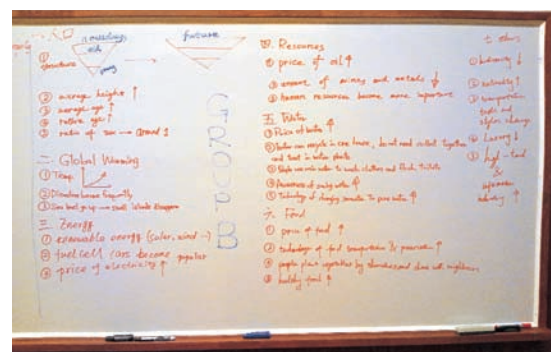 nowadays
old
young
future
① structure
② average height ↑
③ average age ↑
④ retire age ↑
⑤ ratio of → around 1
二 Global Warming
① Temp.
② Disasters frequently
③ Sea level go up → small islands disappear
三 Energy
① renewable energy (solar, wind …)
② fuel cell cars become popular
③ price of electricity ↑
Group B
四. Resources
① price of oil ↑
② amount of mines and metals ↓
③ human resources become more important
五 Water
① Price of water ↑
② Water can recycle in one house, do not need collect together
and treat in water plants
③ People use rain water to wash clothes and flush toilets
④ Awareness of saving water ↑
⑤ Technology of changing seawater to pure water ↑
六. Food
① price of food ↑
② technology of food transportation & preservation ↑
③ people plant vegetables by themselves and share with neighbors
④ healthy food ↑
七 others
① ↓
② ↑
③ transportation
styles change
④ Luxury ↓
⑤ high-tech
&
industry ↑